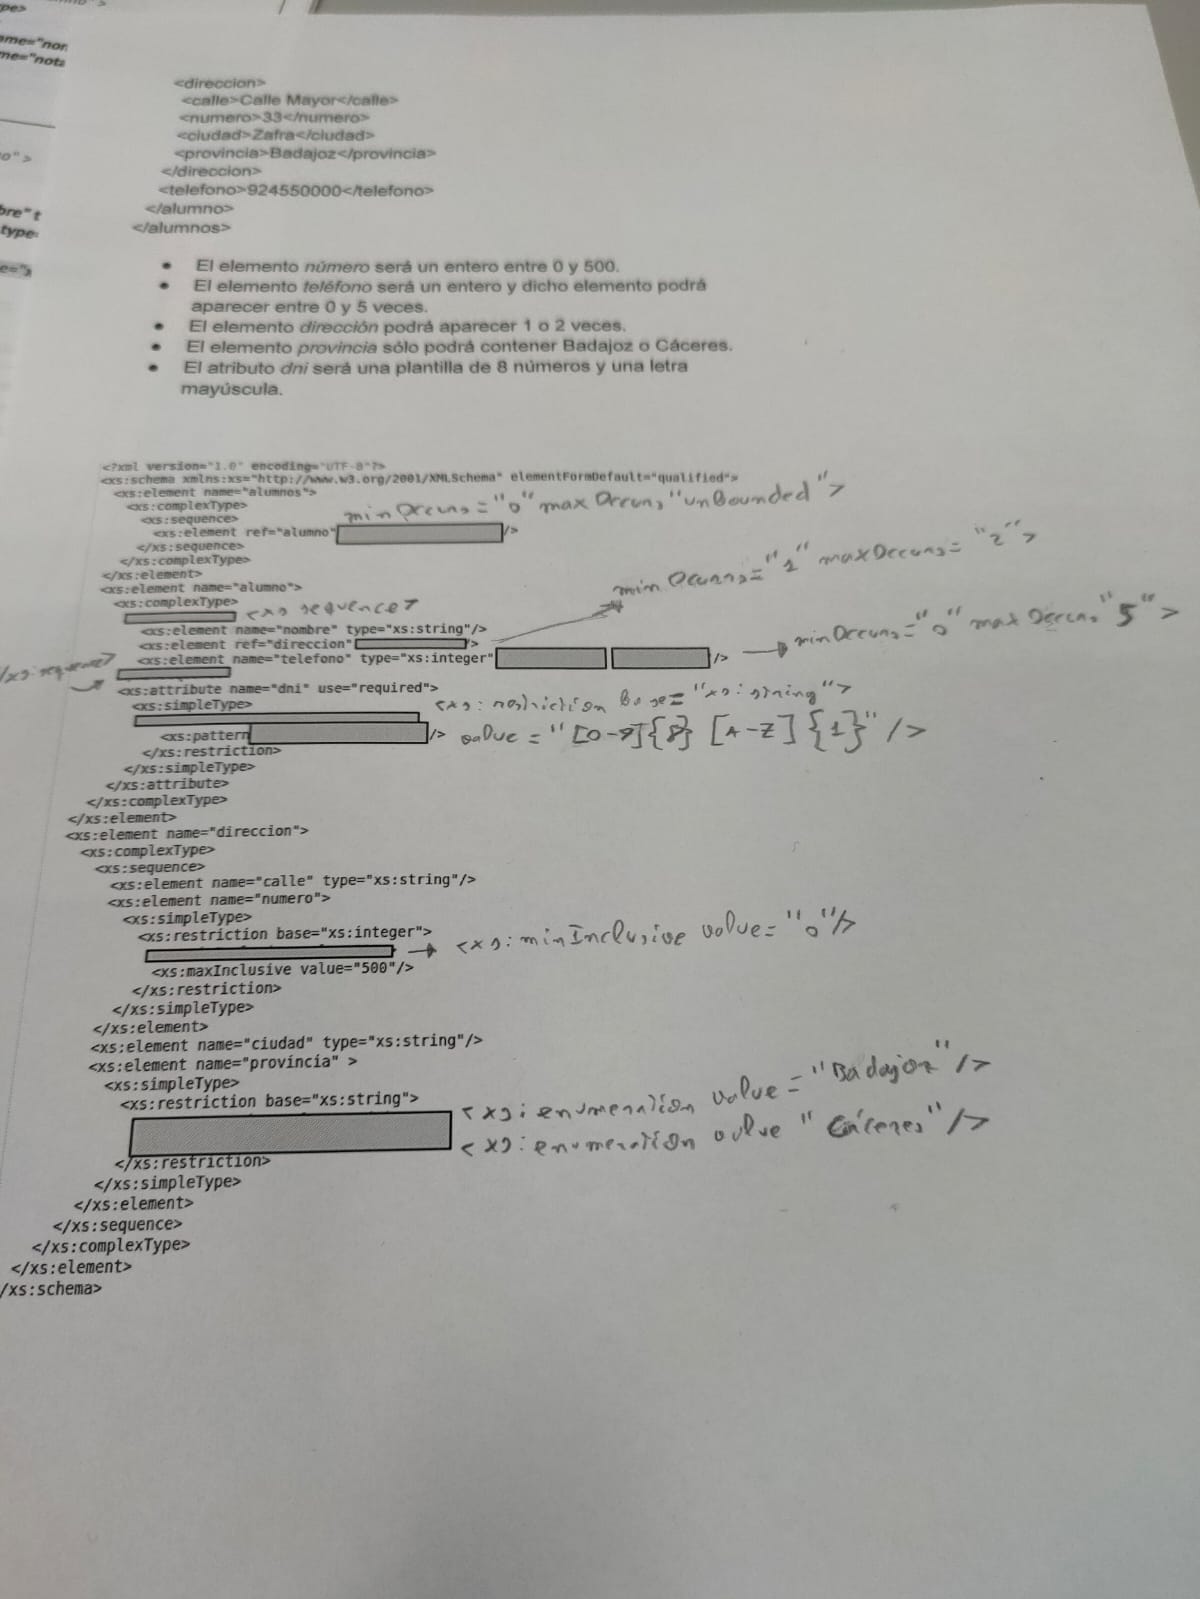 pe>
ame="nor
me="nota
o">
bre" t
type=
<direccion>
<calle>Calle Mayor</calle>
<numero>33</numero>
<ciudad>Zafra</ciudad>
<provincia>Badajoz</provincia>
</direccion>
<telefono>924550000</telefono>
</alumno>
</alumnos>
• El elemento número será un entero entre 0 y 500.
• El elemento teléfono será un entero y dicho elemento podrá
aparecer entre 0 y 5 veces.
• El elemento dirección podrá aparecer 1 o 2 veces.
• El elemento provincia sólo podrá contener Badajoz o Cáceres.
• El atributo dni será una plantilla de 8 números y una letra
mayúscula.
<?xml version="1.0" encoding="UTF-8"?>
<xs:schema xmlns:xs="http://www.w3.org/2001/XMLSchema" elementFormDefault="qualified">
<xs:element name="alumnos">
<xs:complexType>
<xs:sequence>
minOccurs="0" maxOccurs "unBounded">
<xs:element ref="alumno" />
</xs:sequence>
</xs:complexType>
</xs:element>
<xs:element name="alumno">
minOccurs="1" maxOccurs="2">
<xs:complexType>
<xs sequence>
<xs:element name="nombre" type="xs:string"/>
<xs:element ref="direccion" />
<xs:element name="telefono" type="xs:integer" /> minOccurs="0" maxOccurs "5">
/xs:sequence>
<xs:attribute name="dni" use="required">
<xs:simpleType> <xs:restriction base="xs:string">
<xs:pattern /> value="[0-9]{8} [A-Z]{1}"/>
</xs:restriction>
</xs:simpleType>
</xs:attribute>
</xs:complexType>
</xs:element>
<xs:element name="direccion">
<xs:complexType>
<xs:sequence>
<xs:element name="calle" type="xs:string"/>
<xs:element name="numero">
<xs:simpleType>
<xs:restriction base="xs:integer">
<xs:minInclusive value="0"/>
<xs:maxInclusive value="500"/>
</xs:restriction>
</xs:simpleType>
</xs:element>
<xs:element name="ciudad" type="xs:string"/>
<xs:element name="provincia" >
<xs:simpleType>
<xs:restriction base="xs:string">
<xs:enumeration value="Badajoz"/>
<xs:enumeration value "Cáceres"/>
</xs:restriction>
</xs:simpleType>
</xs:element>
</xs:sequence>
</xs:complexType>
</xs:element>
/xs:schema>